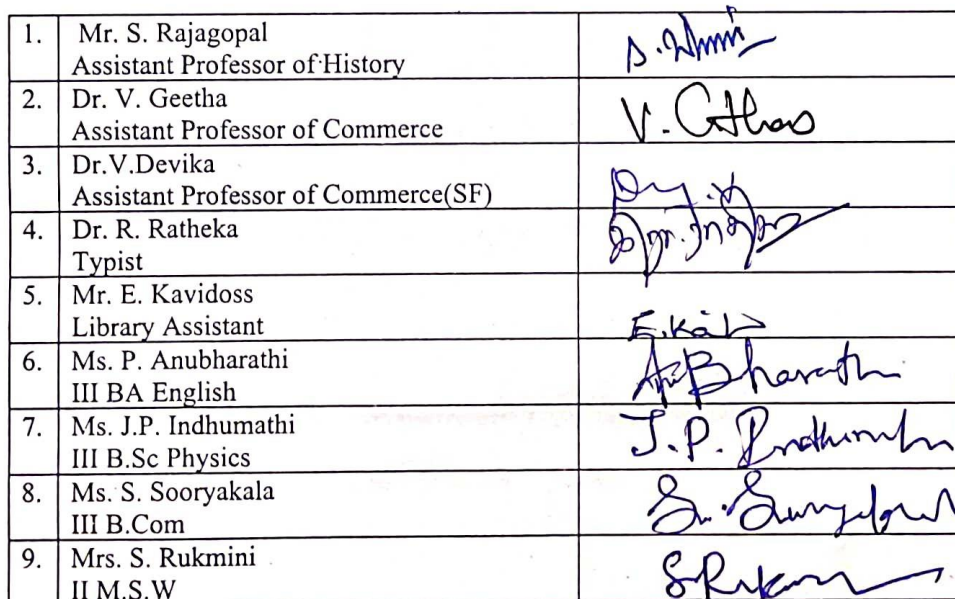 1. Mr. S. Rajagopal
Assistant Professor of History
2. Dr. V. Geetha
Assistant Professor of Commerce
V.
3. Dr.V.Devika
Assistant Professor of Commerce(SF)
4. Dr. R. Ratheka
Typist
5. Mr. E. Kavidoss
Library Assistant
6. Ms. P. Anubharathi
III BA English
7. Ms. J.P. Indhumathi
III B.Sc Physics
J.P.
8. Ms. S. Sooryakala
III B.Com
9. Mrs. S. Rukmini
II M.S.W